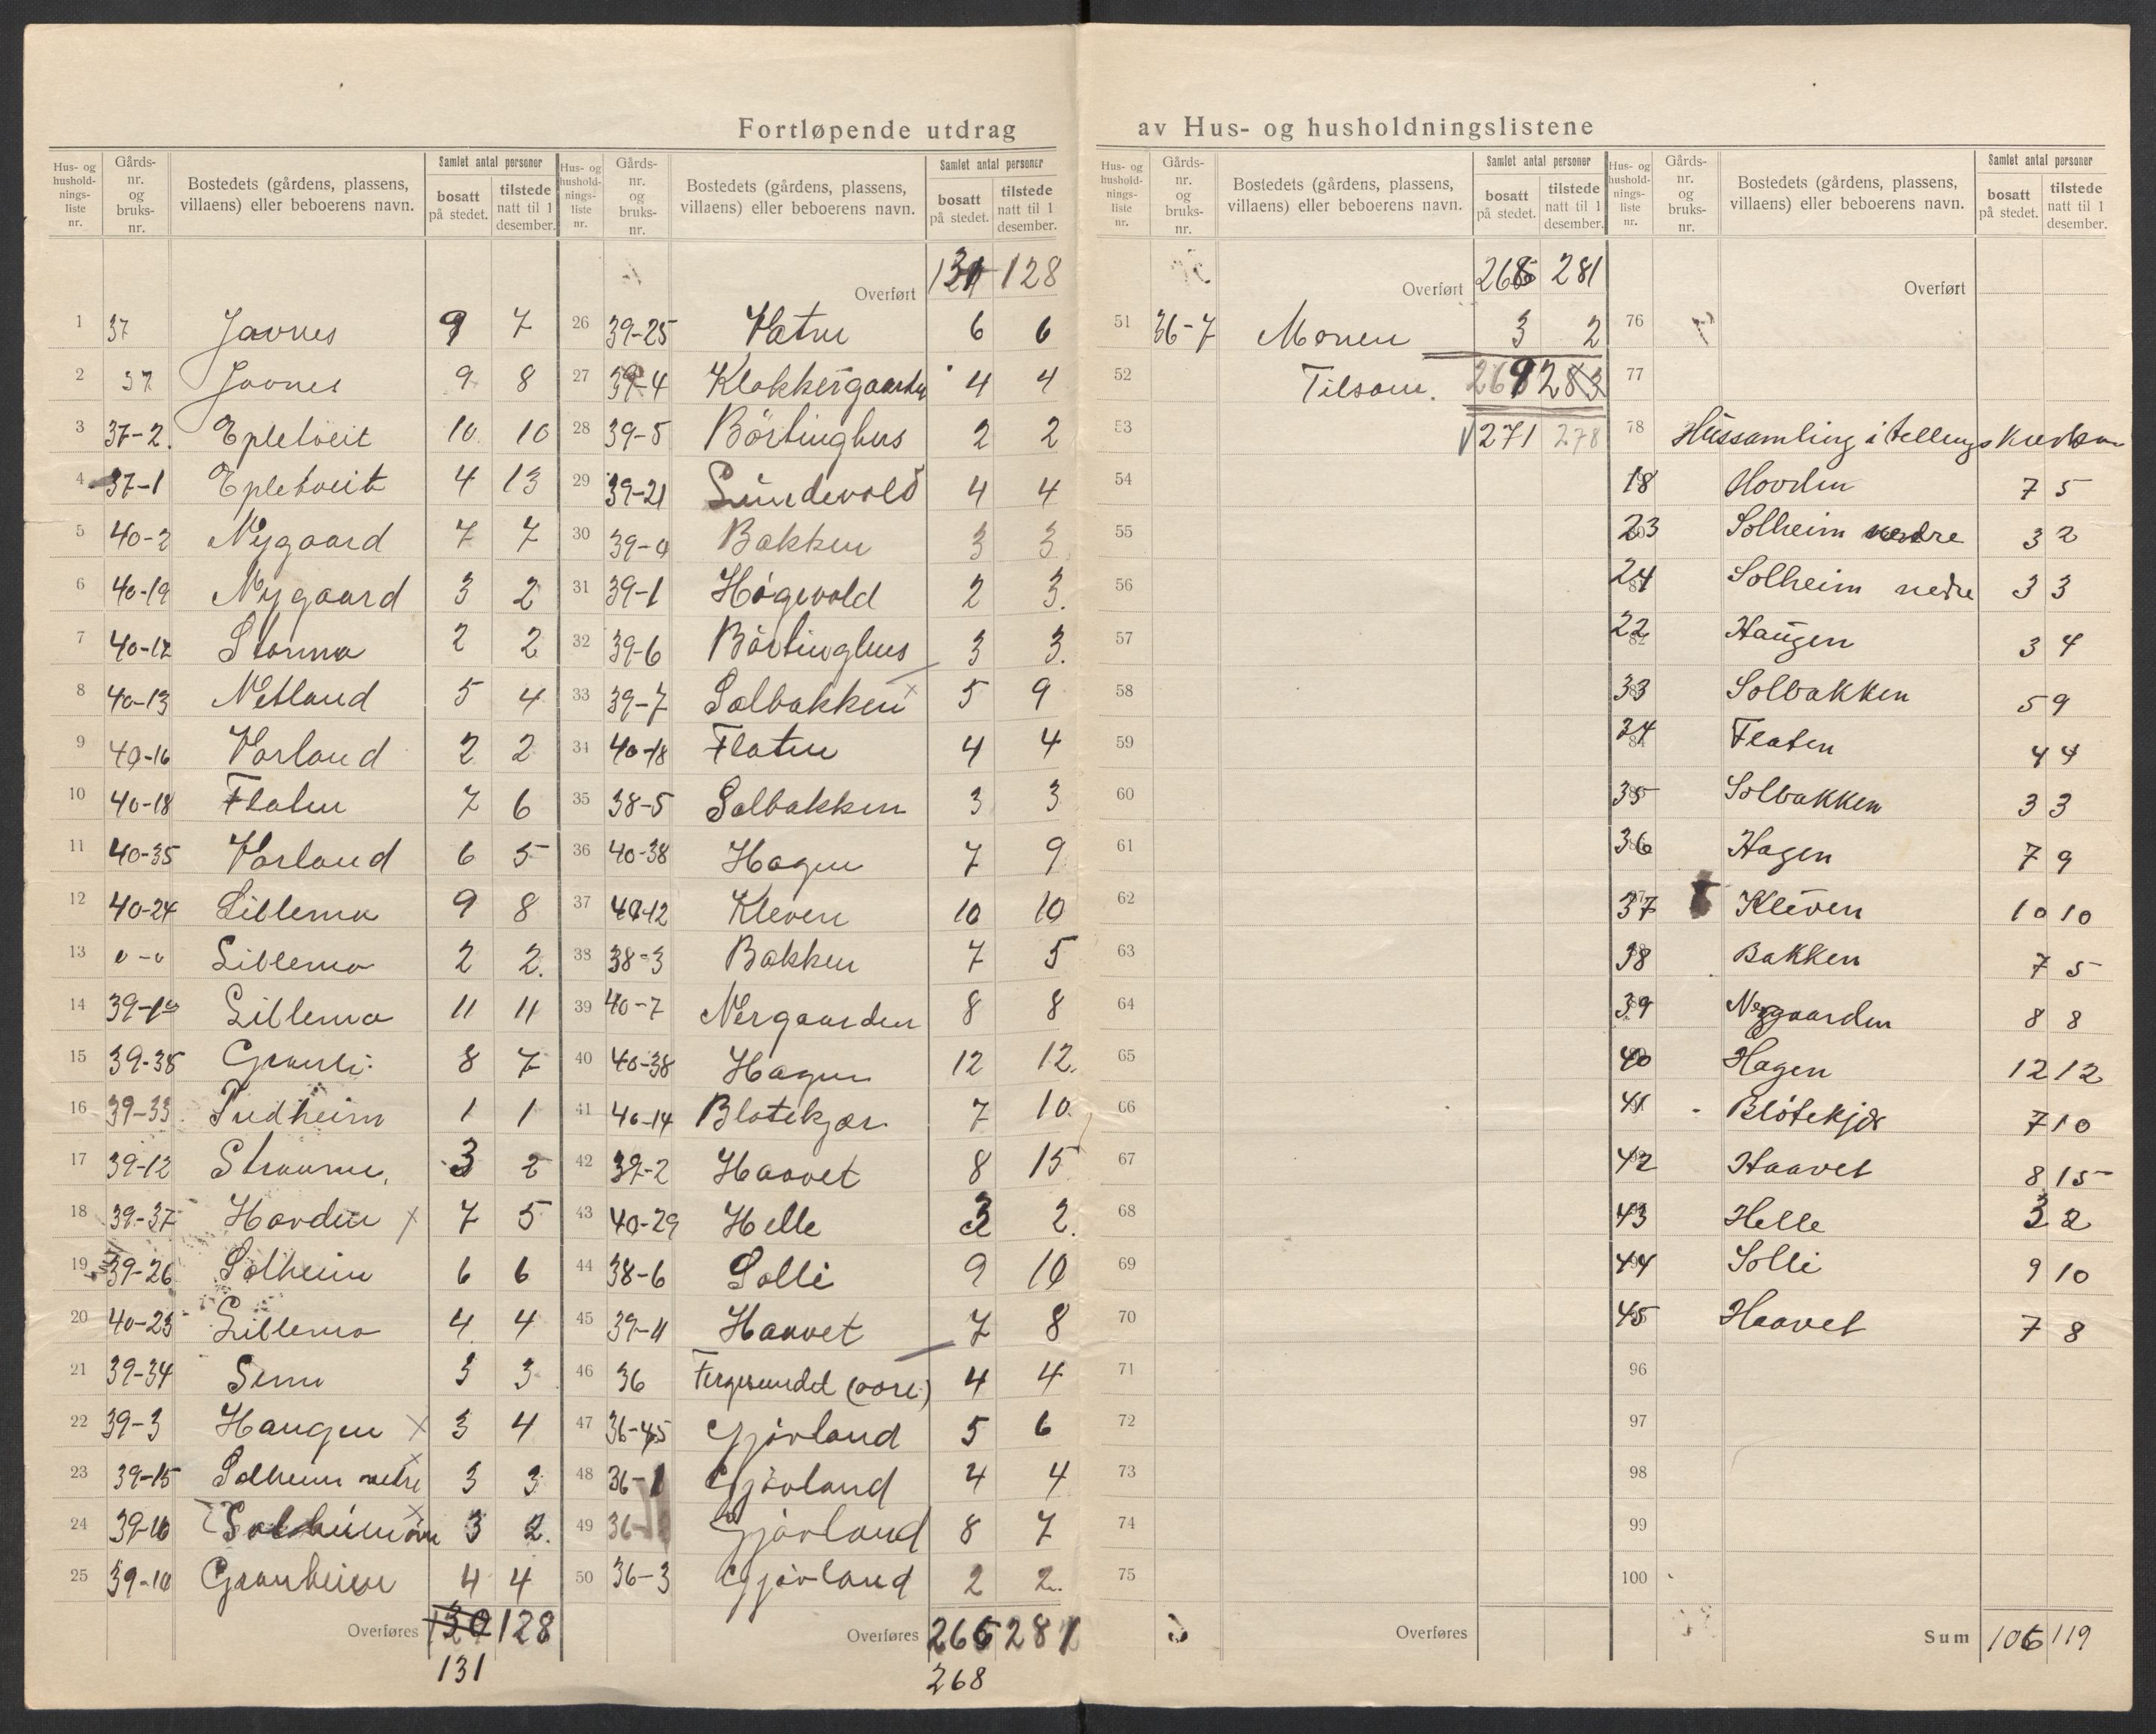 Fortløpende utdrag av Hus- og husholdningslistene
Hus- og husholdnings-liste nr. Gårds-nr. og bruks-nr. Bostedets (gårdens, plassens, villaens) eller beboerens navn. Samlet antal personer bosatt på stedet. tilstede natt til 1 desember.
1 37 Jovnes 9 7
2 37 Jovnes 9 8
3 37-2. Epletveit 10 10
4 37-1 Epletveit 4 13
5 40-2 Nygaard 7 7
6 40-19 Nygaard 3 2
7 40-12 Storma 2 2
8 40-13 Netland 5 4
9 40-16 Vorland 2 2
10 40-18 Flaten 7 6
11 40-35 Vorland 6 5
12 40-24 Lillemo 9 8
13 0-0 Lillemo 2 2.
14 39-10 Lillemo 11 11
15 39-38 Granli 8 7
16 39-33 Sudheim 1 1
17 39-12 Straume. 3 2
18 39-37 Hovden x 7 5
19 39-26 Solheim 6 6
20 40-25 Lillemo 4 4
21 39-34 Senn 3 3
22 39-3 Haugen x 3 4
23 39-15 Solheim nedre x 3 3
24 39-16 Solheim øvre x 3 2.
25 39-10 Granheim 4 4
Overføres 130 128
131
Hus- og husholdnings-liste nr. Gårds-nr. og bruks-nr. Bostedets (gårdens, plassens, villaens) eller beboerens navn. Samlet antal personer bosatt på stedet. tilstede natt til 1 desember.
Overført 131 128
26 39-25 Vatne 6 6
27 39-4 Klokkergaarden 4 4
28 39-5 Börtinghus 2 2
29 39-21 Sundevold 4 4
30 39-9 Bakken 3 3
31 39-1 Högevold 2 3.
32 39-6 Börtinghus 3 3.
33 39-7 Solbakken x 5 9
34 40-18 Flaten 4 4
35 38-5 Solbakken 3 3
36 40-38 Hagen 7 9
37 40-12 Kleven 10 10
38 38-3 Bakken 7 5
39 40-7 Nergaarden 8 8
40 40-38 Hagen 12 12.
41 40-14 Blotekjær 7 10.
42 39-2 Haavet 8 15
43 40-29 Helle 3 2.
44 38-6 Solli 9 10
45 39-11 Haavet 7 8
46 36 Fergesundet 4 4
47 36-45 Gjövland 5 6
48 36-1 Gjövland 4 4
49 36- Gjövland 8 7
50 36-3 Gjövland 2 2.
Overføres 266 281
268
Hus- og husholdnings-liste nr. Gårds-nr. og bruks-nr. Bostedets (gårdens, plassens, villaens) eller beboerens navn. Samlet antal personer bosatt på stedet. tilstede natt til 1 desember.
Overført 268 281
51 36-7 Monen 3 2
52 Tilsam. 269 283
53 271 278
54
55
56
57
58
59
60
61
62
63
64
65
66
67
68
69
70
71
72
73
74
75
Overføres
Hus- og husholdnings-liste nr. Gårds-nr. og bruks-nr. Bostedets (gårdens, plassens, villaens) eller beboerens navn. Samlet antal personer bosatt på stedet. tilstede natt til 1 desember.
Overført
76
77
78 Hussamling i tellings
18 Hovden 7 5
23 Solheim 3 2
24 Solheim nedre 3 3
22 Haugen 3 4
33 Solbakken 5 9
34 Flaten 4 4
35 Solbakken 3 3
36 Hagen 7 9
37 Kleven 10 10
38 Bakken 7 5
39 Nergaarden 8 8
40 Hagen 12 12
41 Blötekjær 7 10
42 Haavet 8 15
43 Helle 3 2
44 Solli 9 10
45 Haavet 7 8
96
97
98
99
100
Sum 106 119